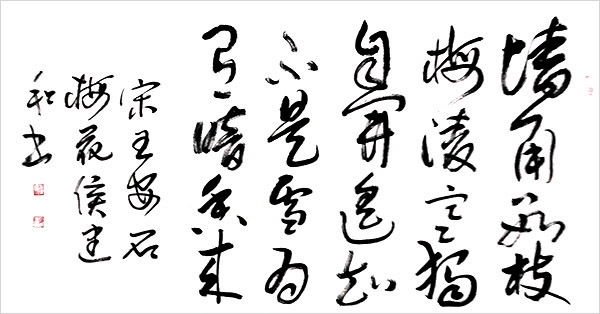 墙角数枝
梅凌寒獨
自開遥知
不是雪为
有暗香来
宋王安石
梅花侯建
和书